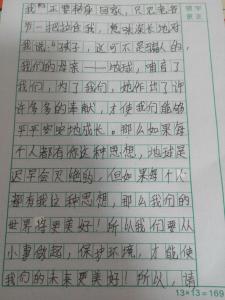 我"正要转身回家，只见老爷
爷一把拉住我，意味深长地对
我说："孩子，这可不是骗人的，
我们的母亲——地球，哺育了
我们，为了我们，她作出了许
许多多的奉献，才使我们能够
平平安安地成长。那么如果每
个人都有你这种思想，地球是
迟早会灭绝的，但如果每个人
都有我这种思想，那么我们的
世界将更美好！所以我们要从
小事做起，保护环境，才能使
我们的未来更美好！所以，请
13×13=169